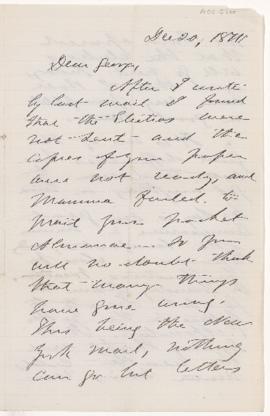 Dec 20, 1871
Dear George,
After I wrote
by last mail I found
that the Electios were
not sent and the
copies of your paper
were not ready, and
Mamma failed to
mail your pocket
Almanac — So you
will no doubt think
that many things
have gone wrong.
This being the New
York mail, nothing
can go but letters